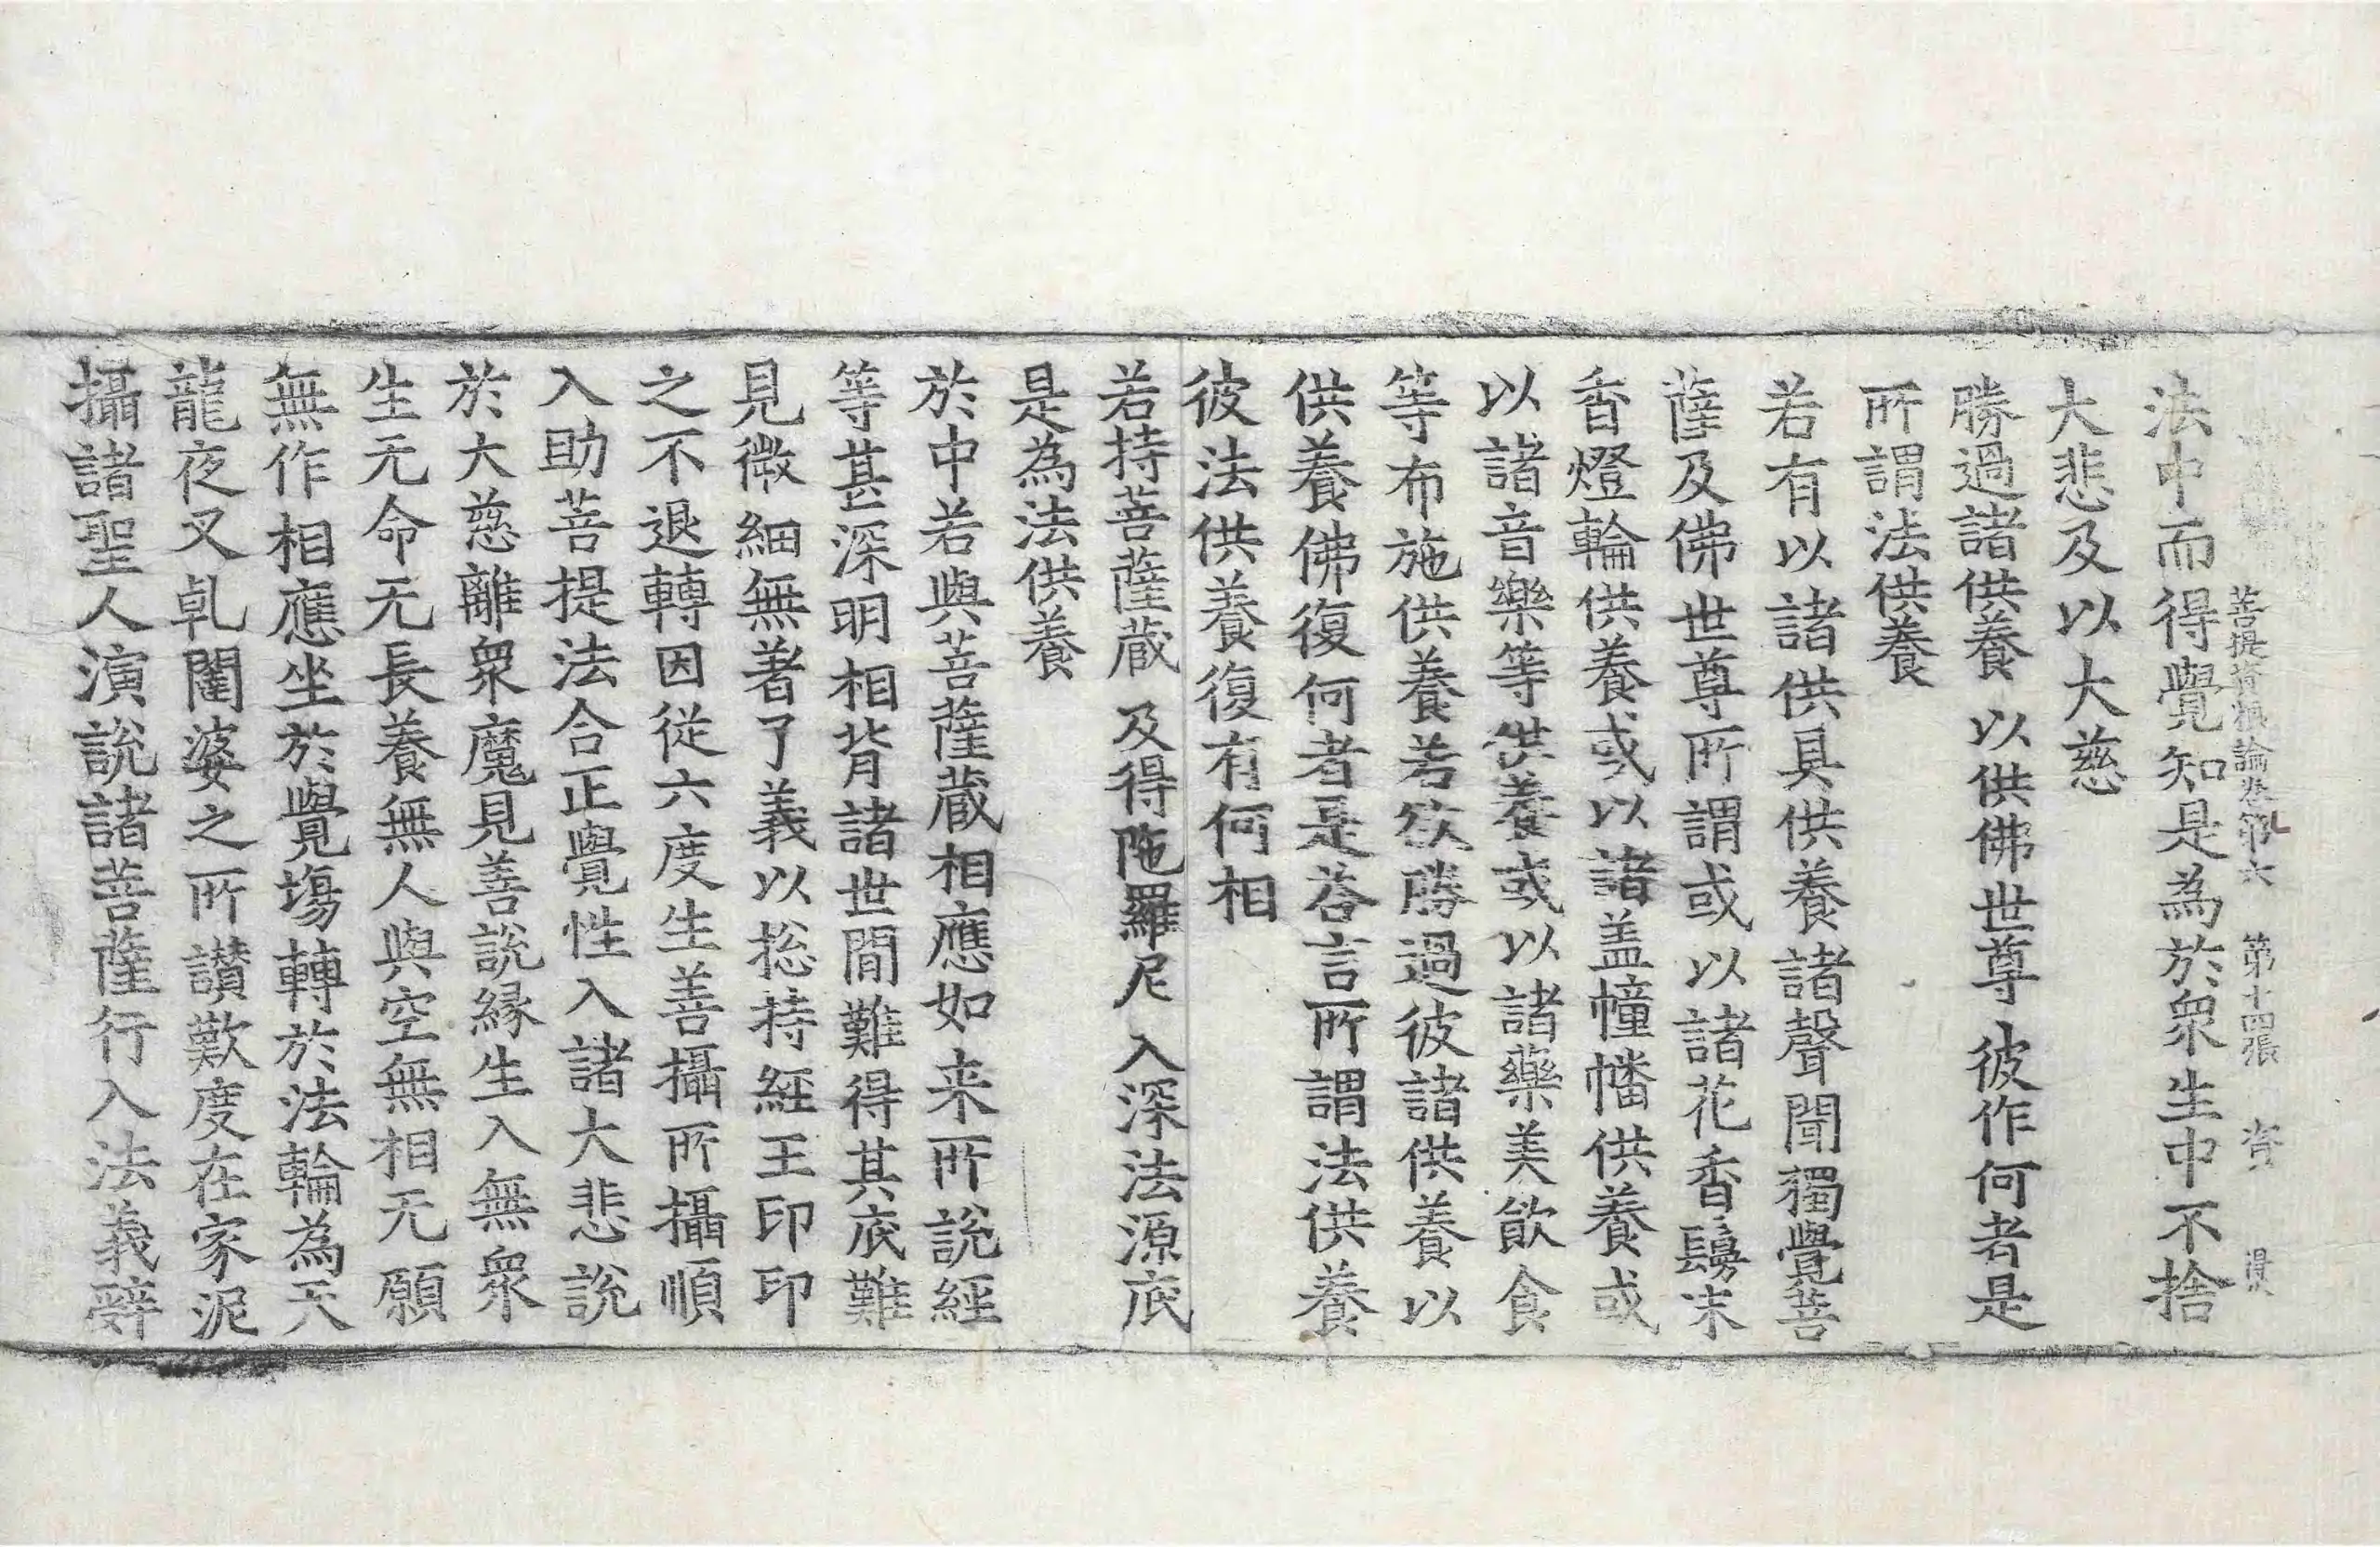 菩提資糧論卷第六 第十四張 資
法中而得覺知是為於衆生中不捨
大悲及以大慈
勝過諸供養 以供佛世尊 彼作何者是
所謂法供養
若有以諸供具供養諸聲聞獨覺菩
薩及佛世尊所謂或以諸花香鬘末
香燈輪供養或以諸盖幢幡供養或
以諸音樂等供養或以諸藥美飲食
等布施供養若欲勝過彼諸供養以
供養佛復何者是荅言所謂法供養
彼法供養復有何相
若持菩薩蔵 及得陁羅尼 入深法源底
是為法供養
於中若與菩薩蔵相應如来所說經
等甚深明相背諸世間難得其底難
見微細無著了義以捴持經王印印
之不退轉因從六度生善攝所攝順
入助菩提法合正覺性入諸大悲說
於大慈離衆魔見善說緣生入無衆
生无命无長養無人與空無相无願
無作相應坐於覺塲轉於法輪為天
龍夜叉乹闥婆之所讚歎度在家泥
攝諸聖人演說諸菩薩行入法義辭